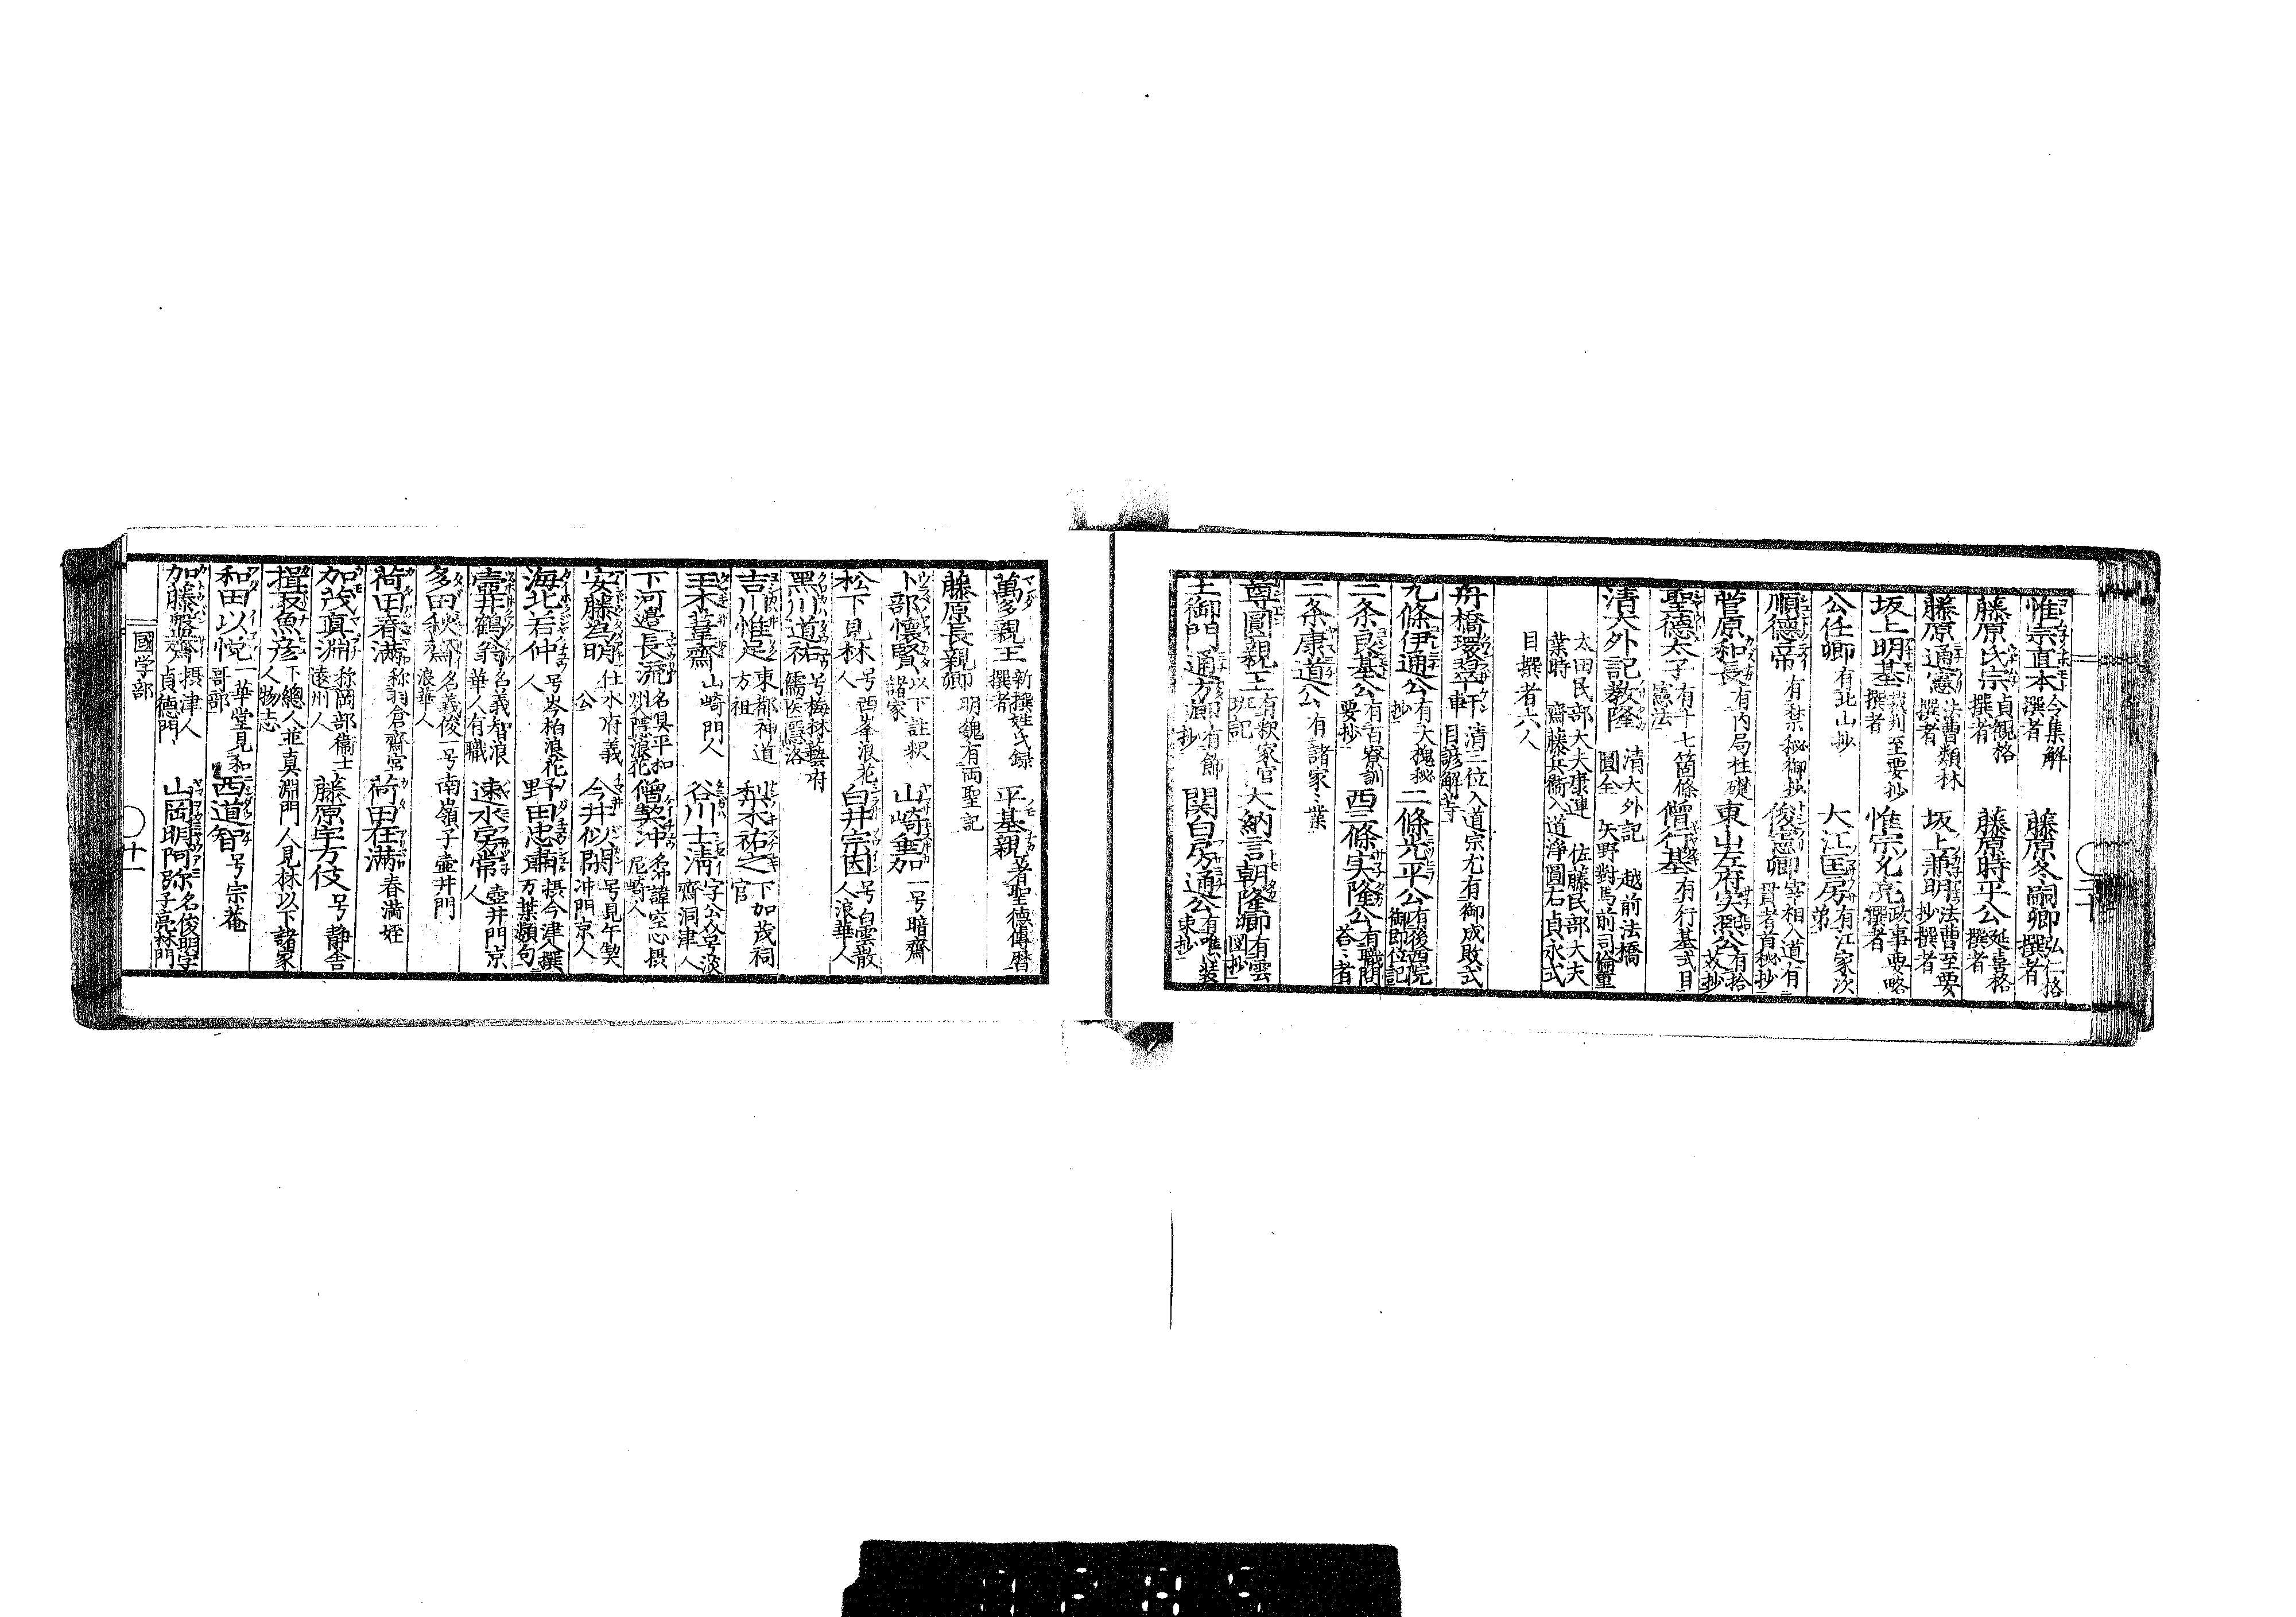 惟宗直本 令集解撰者 藤原冬嗣卿 弘仁格撰者
藤原氏宗 貞観格撰者 藤原時平公 延喜格撰者
藤原通憲 法曹類林撰者 坂上兼明 法曹至要抄撰者
坂上明基 裁判至要抄撰者 惟宗允亮 政事要略撰者
公任卿 有北山抄 大江匡房 有江家次第
順徳帝 有禁秘御抄 俊憲卿 宰相入道有貫首秘抄
菅原和長 有内局柱礎 東山左府実熙公 有拾芥抄
聖德太子 有十七箇條憲法 僧行基 有行基式目
清大外記教隆 清大外記 越前法橋圓全 矢野對馬前司倫重
太田民部大夫康連 佐藤民部大夫業時 齋藤兵衞入道淨圓右貞永式
目撰者六人
舟橋環翠軒 清三位入道宗尤有御成敗式目諺解等
九條伊通公 有大槐秘抄 二條光平公 有後西院御即位記
二条良基公 有百寮訓要抄 西三條実隆公 有職問荅ミ者
二条康道公 有諸家ミ業
尊圓親王 有釈家官班記 大納言朝隆卿 有雲図抄
土御門通方卿 有餝抄 関白房通公 有唯装束抄
萬多親王 新撰姓氏録撰者 平基親 著聖德傳暦
藤原長親卿 明魏有両聖記
卜部懷賢 以下註釈諸家 山崎垂加 一号暗齋
松下見林 号西峯浪花人 白井宗因 号白雲散人浪華人
黒川道祐 号梅林藝府儒医隠洛
吉川惟足 東都神道方祖 梨木祐之 下加茂祠官
玉木葦齋 山崎門人 谷川士清 字公介号淡齋洞津人
下河邊長流 名具平和州隠浪花 僧契沖 諱空心摂尼崎人
安藤為明 仕水府義公 今井似閑 号見午契冲門京人
海北若冲 号岑柏浪花人 野田忠肅 摂今津人撰万葉類句
壷井鶴翁 名義智浪華人有職 速水房常 壷井門京人
多田秋齋 名義俊一号南嶺子壷井門浪華人
荷田春満 称羽倉齋宮 荷田在満 春満姪
加茂真淵 称岡部衞士遠州人 藤原宇万伎 号静舎
揖取魚彦 下總人並真淵門人見林以下諸家人物志
和田以悦 一華堂見和哥部 西道智 号宗菴
加藤盤齋 摂津人貞德門 山岡明阿弥 名俊明字子亮林門
國学部 十一